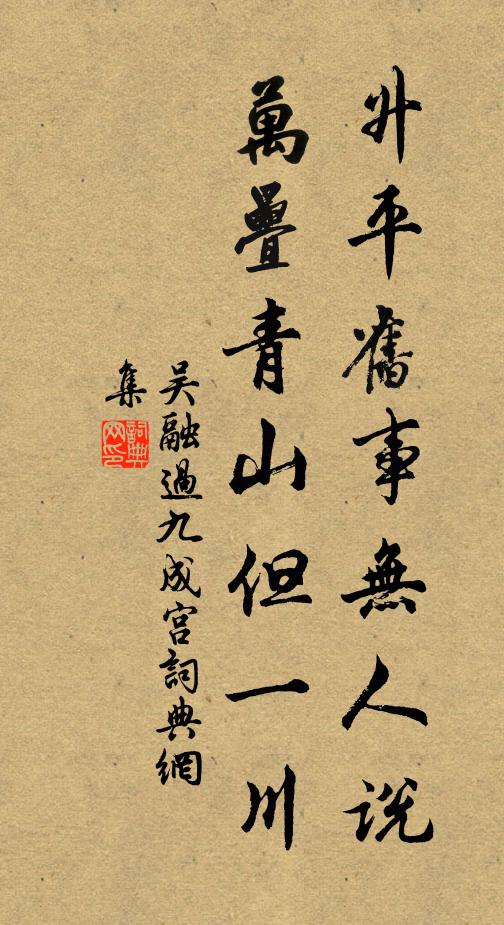 升平舊事無人說
萬疊青山但一川
吳融過九成宮詞典網
集
詞典網印